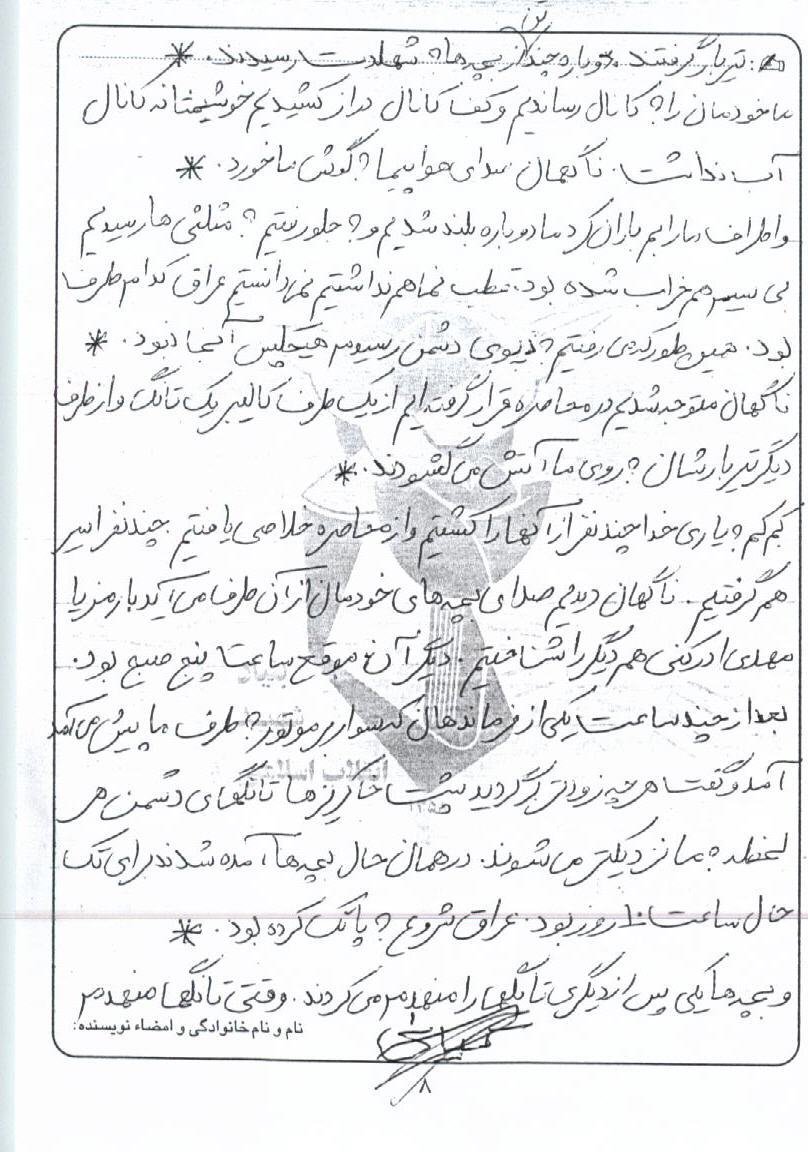 تن
: تیربار گرفتند. دوباره چند از بچه‌ها به شهادت رسیدند. *
ما خودمان را به کانال رساندیم و کف کانال دراز کشیدیم خوشبختانه کانال
آب نداشت. ناگهان صدای هواپیما به گوش ما خورد. *
و اطراف ما را بمباران کرد ما دوباره بلند شدیم و به جلو رفتیم به مثلثی ها رسیدیم
بی سیم هم خراب شده بود. قطب نما هم نداشتیم نمی دانستیم عراق کدام طرف
بود. همین طور که می رفتیم به نیروی دشمن رسیدیم هیچکس آنجا نبود. *
ناگهان متوجه شدیم در محاصره قرار گرفته ایم از یک طرف کالیبر یک تانک و از طرف
دیگر تیربارشان به روی ما آتش می گشودند. *
کم کم به یاری خدا چند نفر از آنها را کشتیم و از محاصره خلاصی یافتیم. چند نفر اسیر
هم گرفتیم. ناگهان دیدیم صدای بچه های خودمان از آن طرف می آید با رمز یا
مهدی ادرکنی هم دیگر را شناختیم. دیگر آن موقع ساعت پنج صبح بود.
بعد از چند ساعت یکی از فرماندهان که سوار بر موتور به طرف ما پیش می آمد
آمد و گفت هر چه زودتر برگردید پشت خاکریزها تانکهای دشمن هر
لحظه به ما نزدیکتر می شوند. در همان حال بچه ها آمده شدند برای تک
حال ساعت ۱۰ روز بود. عراق شروع به پاتک کرده بود. *
و بچه ها یکی پس از دیگری تانکها را منهدم می کردند. وقتی تانکها منهدم
نام و نام خانوادگی و امضاء نویسنده:
۸
بنیاد
شهید
انقلاب اسلامی